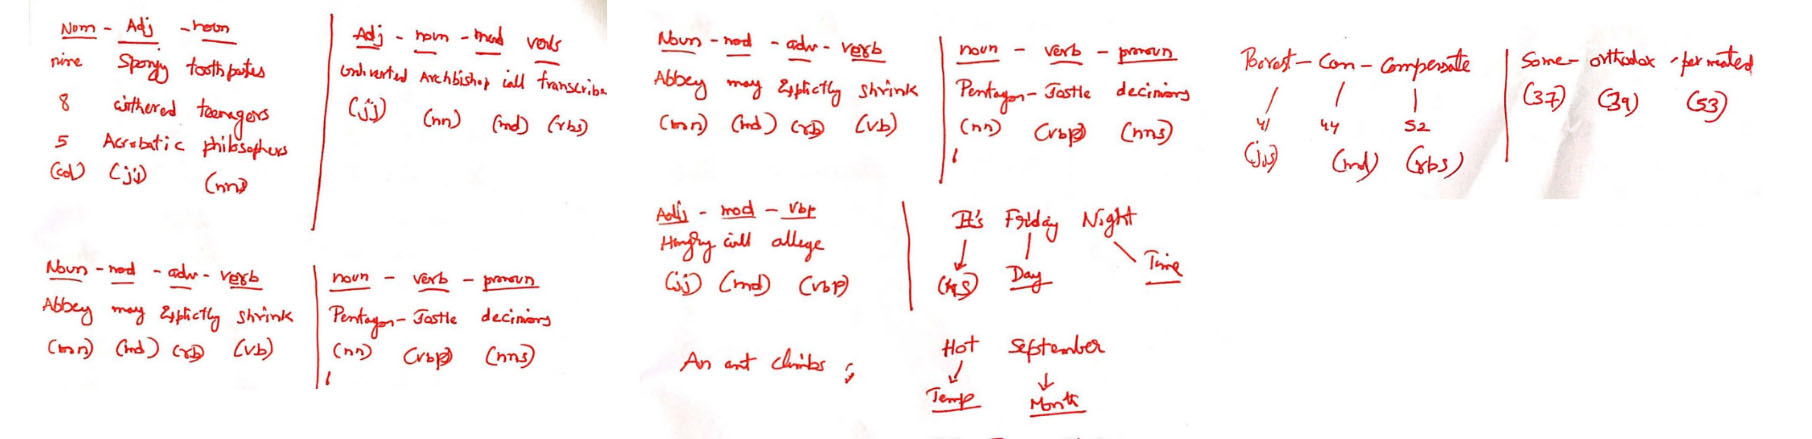 Nom - Adj - noun
nine Spongy toothpastes
8 withered teenagers
5 Acrobatic philosophers
(cd) (jj) (nns)
Adj - noun - mod verbs
Archbishop will transcribe
(jj) (nn) (md) (rbs)
Noun - mod - adv - verb
Abbey may Explictly shrink
(nn) (md) (rb) (vb)
noun - verb - pronoun
Pentagon - Jostle decisions
(nn) (vbp) (nns)
Noun - mod - adv - verb
Abbey may Explictly shrink
(nn) (md) (rb) (vb)
noun - verb - pronoun
Pentagon - Jostle decisions
(nn) (vbp) (nns)
Adj - mod - vbp
Hungry will allege
(jj) (md) (vbp)
It's Friday Night
Day Time
An ant climbs ;
Hot September
Temp Month
Can - Compensate
41 44 52
(jjs) (md) (rbs)
Some - orthodox - permeated
(37) (39) (53)